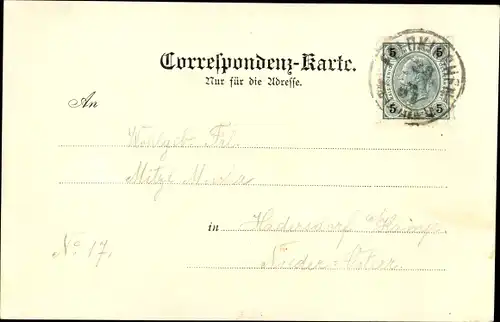 Correspondenz-Karte.
Nur für die Adresse.
5 5
5 5
An
Wohlgeb. Frl.
Mitzl
in Hadersdorf a/Kamp
No 17.
Nieder-Östar